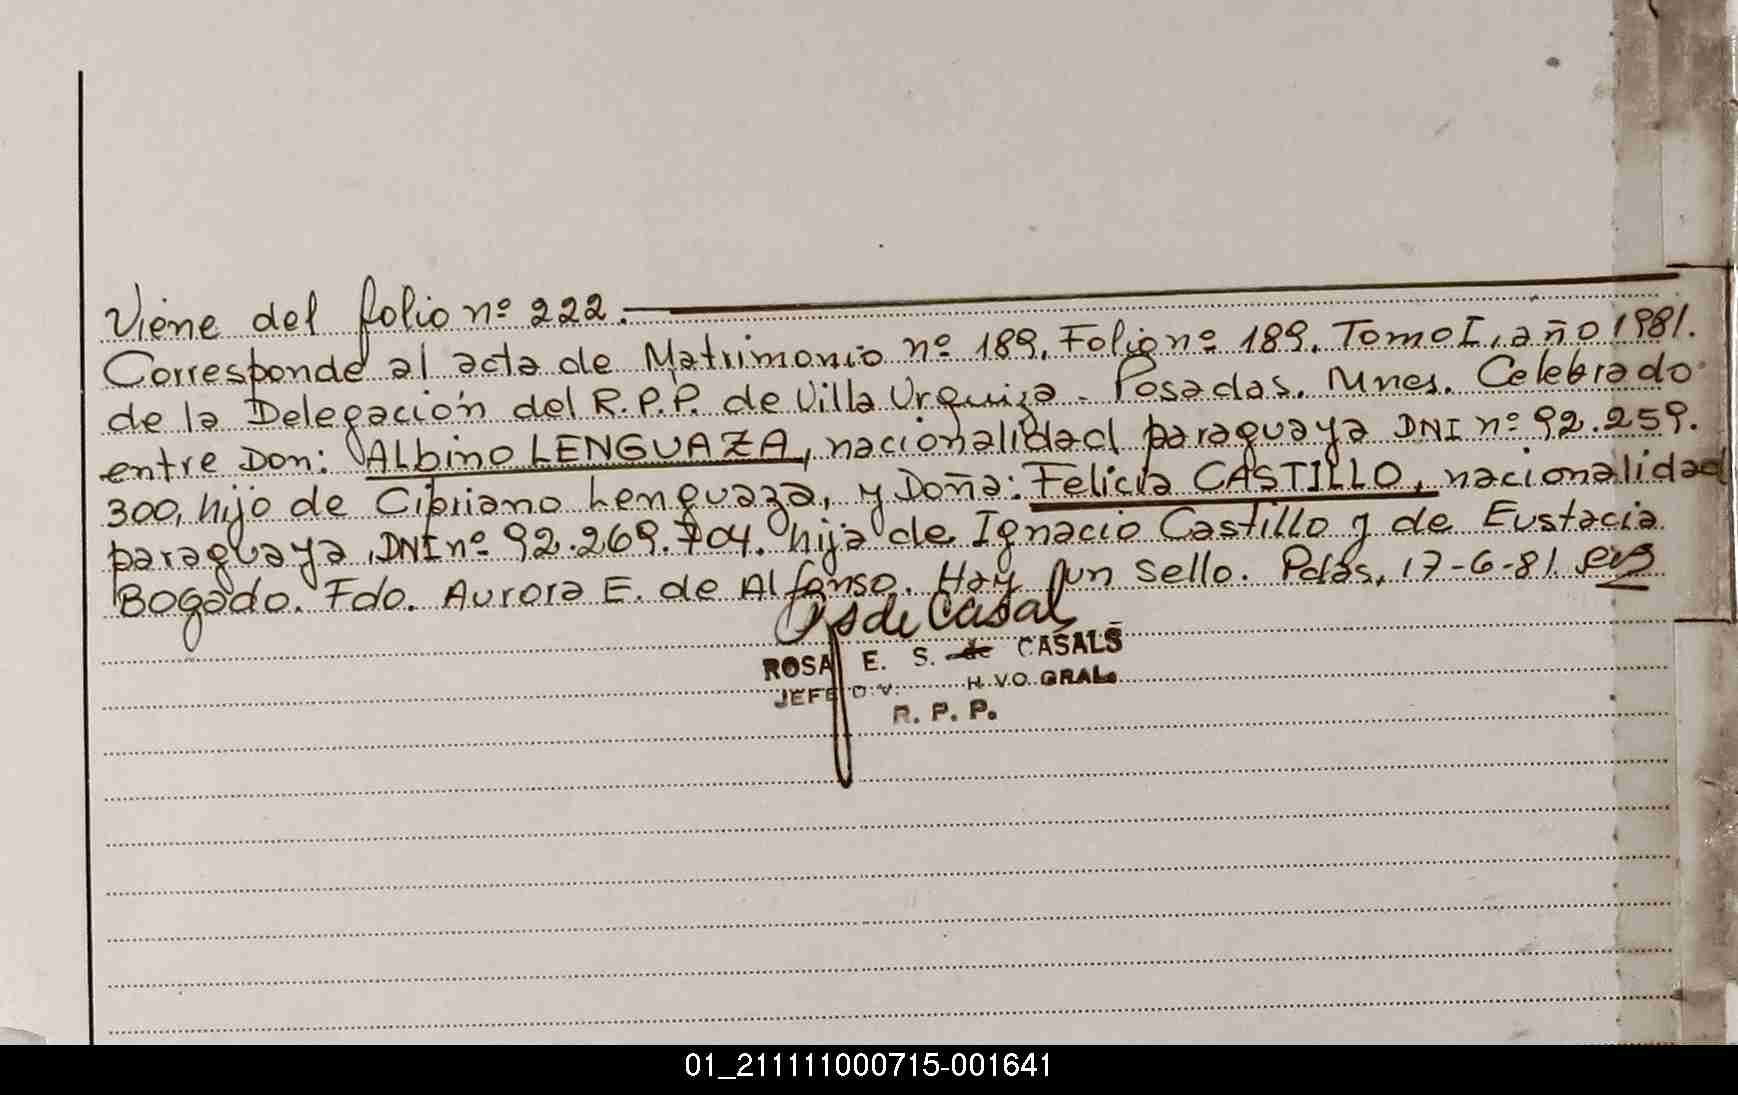 Viene del folio nº 222.
Corresponde al acta de Matrimonio nº 189, Folio nº 189, Tomo I, año 1981.
de la Delegación del R.P.P. de Villa Urquiza - Posadas. Mnes. Celebrado
entre Don: Albino LENGUAZA, nacionalidad paraguaya DNI nº 92.259.
300, hijo de Cipriano Lenguaza, y Doña: Felicia CASTILLO, nacionalidad
paraguaya, DNI nº 92.269.704. hija de Ignacio Castillo y de Eustacia
Bogado. Fdo. Aurora E. de Alfonso. Hay un sello. Pdas, 17-6-81.
de Casal
ROSA E. S. de CASALS
JEFE H.V.O. GRAL.
R. P. P.
01_211111000715-001641